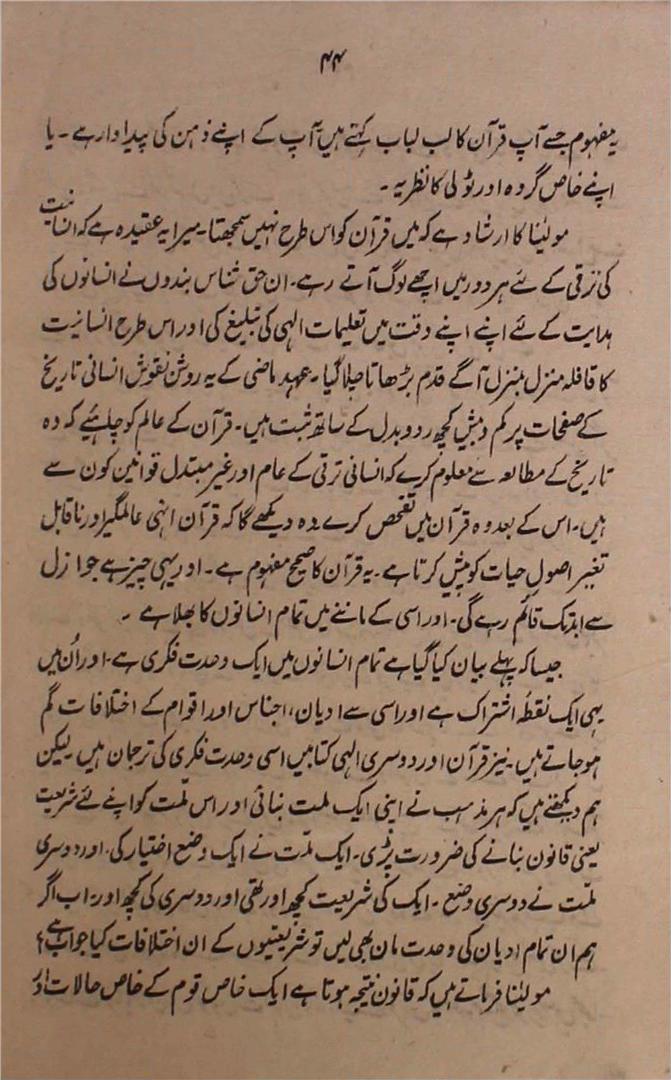 ۴۴
یہ مفہوم جسے آپ قرآن کا لب لباب کہتے ہیں آپ کے اپنے ذہن کی پیداوار ہے۔ یا
اپنے خاص گروہ اور ٹولی کا نظریہ۔
مولینٰا کا ارشاد ہے کہ میں قرآن کو اس طرح نہیں سمجھتا۔ میرا یہ عقیدہ ہے کہ انسانیت
کی ترقی کے لئے ہر دور میں اچھے لوگ آتے رہے۔ ان حق شناس بندوں نے انسانوں کی
ہدایت کے لئے اپنے اپنے وقت میں تعلیمات الٰہی کی تبلیغ کی اور اس طرح انسانیت
کا قافلہ منزل بمنزل آگے قدم بڑھاتا چلا گیا۔ عہد ماضی کے یہ روشن نقوش انسانی تاریخ
کے صفحات پر کم و بیش کچھ رد و بدل کے ساتھ ثبت ہیں۔ قرآن کے عالم کو چاہئیے کہ وہ
تاریخ کے مطالعہ سے معلوم کرے کہ انسانی ترقی کے عام اور غیر مبتدل قوانین کون سے
ہیں۔ اس کے بعد وہ قرآن میں تفحص کرے وہ دیکھے گا کہ قرآن انہی عالمگیر اور ناقابل
تغیر اصولِ حیات کو پیش کرتا ہے۔ یہ قرآن کا صحیح مفہوم ہے۔ اور یہی چیز ہے جو ازل
سے ابد تک قائم رہے گی۔ اور اسی کے ماننے میں تمام انسانوں کا بھلا ہے۔
جیسا کہ پہلے بیان کیا گیا ہے تمام انسانوں میں ایک وحدت فکری ہے۔ اور اُن میں
یہی ایک نقطۂ اشتراک ہے اور اسی سے ادیان، اجناس اور اقوام کے اختلافات گم
ہو جاتے ہیں۔ نیز قرآن اور دوسری الٰہی کتابیں اسی وحدت فکری کی ترجمان ہیں۔ لیکن
ہم دیکھتے ہیں کہ ہر مذہب نے اپنی ایک ملت بنائی اور اس ملّت کو اپنے لئے شریعت
یعنی قانون بنانے کی ضرورت پڑی۔ ایک ملّت نے ایک وضع اختیار کی۔ اور دوسری
ملّت نے دوسری وضع۔ ایک کی شریعت کچھ اور تھی اور دوسری کی کچھ اور۔ اب اگر
ہم ان تمام ادیان کی وحدت مان بھی لیں تو شریعتیوں کے ان اختلافات کیا جواب ہے؟
مولینٰا فرماتے ہیں کہ قانون نتیجہ ہوتا ہے ایک خاص قوم کے خاص حالات اور